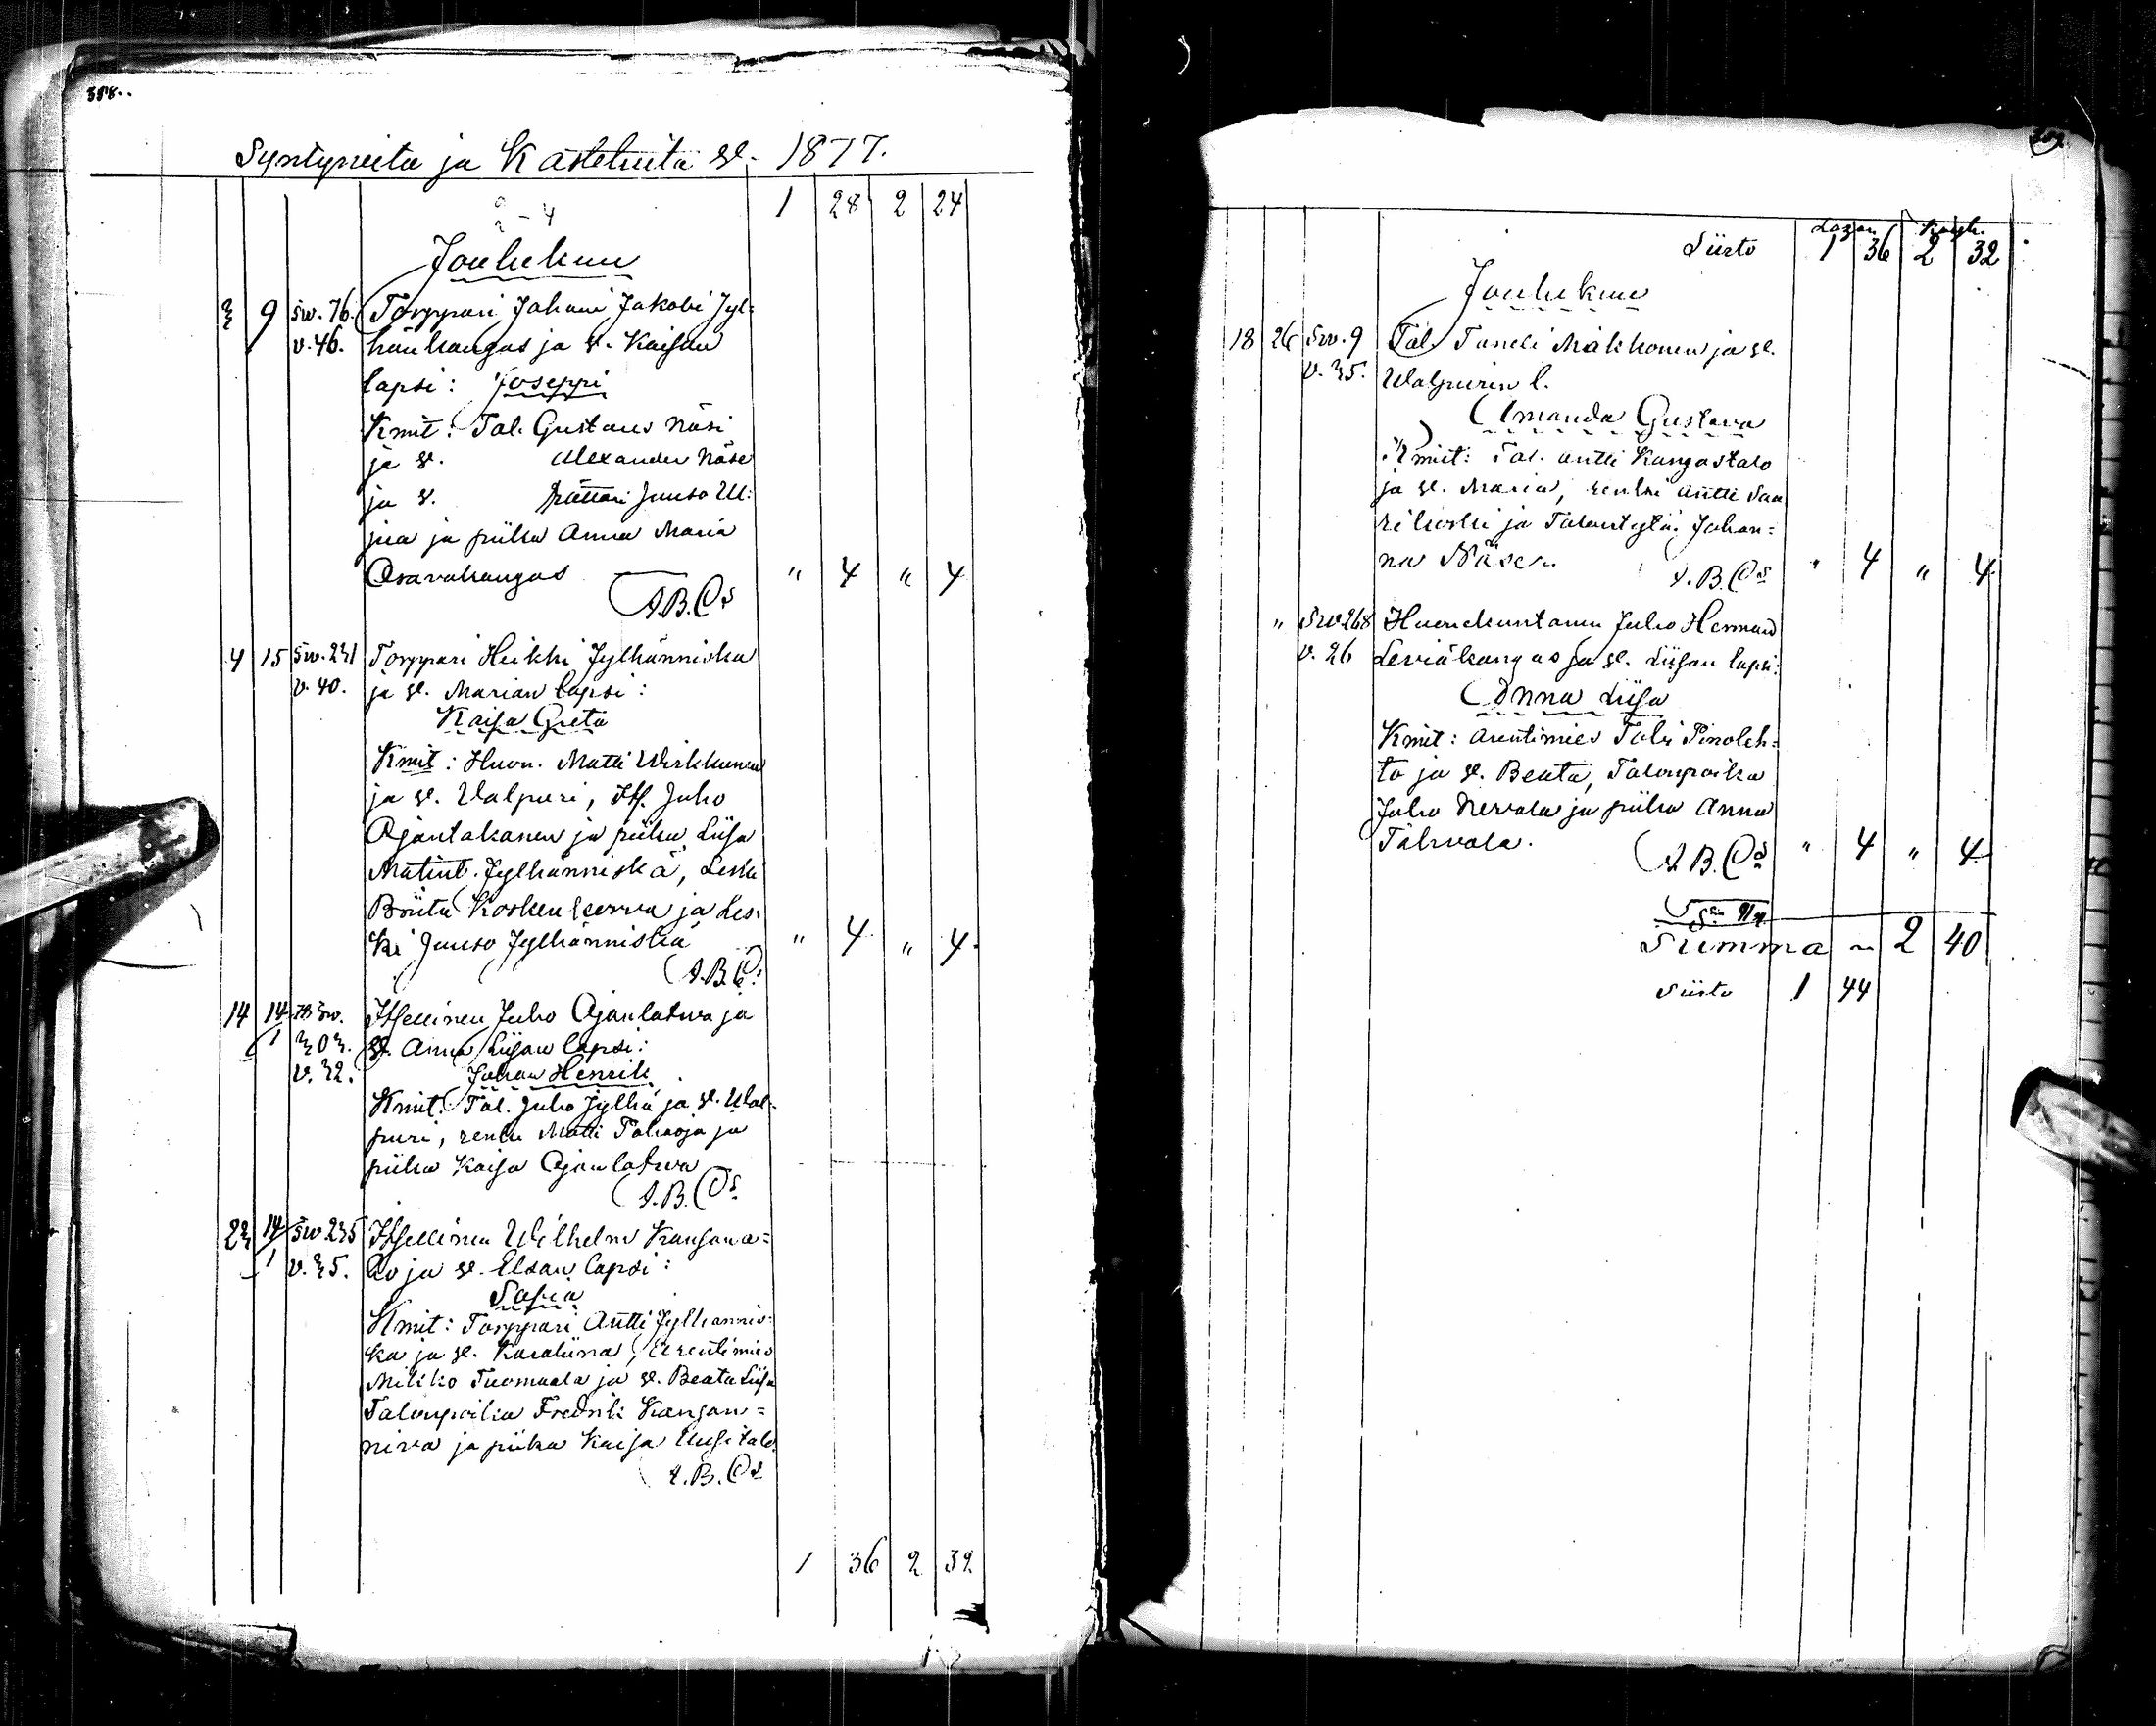 388.
Syntyneitä ja Kastetuita w. 1877.
1 28 2 24
Joulukuu
3 9 Sw. 76. Torppari Johani Jakobi Jyl=
v. 46. hänkangas ja v. Kaisan
lapsi: Joseppi
Kmit: Tal. Gustaus Näsi
ja v. Alexander Näse
ja v. Juuso
ja piika Anna Maria
Osarakangas " 4 " 4
A.B.Cs
4 15 Sw. 231 Torppari Heikki Jylhänniska
v. 40. ja v. Marian lapsi:
Kaisa Greta
Kmit: Huon. Matti Wirkkunen
ja v. Walpuri, Itf. Juho
Ojantakanen ja piika Liisa
Matint. Jylhänniskä, Leski
Briita Koskenkorva ja Les-
ki Juuso Jylhänniskä " 4 " 4.
A.B.Cs
14 14/1 Sw. Itsellinen Juho Ojanlatwa ja
303. v. Anna Liisan lapsi:
v. 32. Johan Henrik
Kmit: Tal. Juho Jylhä ja v. Wal-
puri, renki Matti Pahaoja ja
piika Kaisa Ojanlatwa
A.B.Cs
23 14/1 Sw 235 Itsellinen Wilhelm Kangana=
v. 35. ho ja v. Elsan lapsi:
Sofia
Kmit: Torppari Antti Jylhännis-
ka ja v. Karoliina, Arentimies
Mikko Tuomaala ja v. Beata Liisa
Talonpoika Fredrik Kangan=
niva ja piika Kaisa Uusitalo.
A.B.Cs
1 36 2 32
Siirto 1 36 2 32
Joulukuu
18 26 Sw. 9 Tal. Taneli Mäkkonen ja v.
v. 35. Walpurin l.
Amanda Gustava
Kmit: Tal. Antti Kangastalo
ja v. Maria, renki Antti Saa
rikoski ja Talontytä. Johan=
na Näse. " 4 " 4
A.B.Cs
" Sw 268 Huonekuntainen Juho Herman
v. 26 Leviäkangas ja v. Liisan lapsi:
Anna Liisa
Kmit: Arentimies Tali Pinoleh=
to ja v. Beata, Talonpoika
Juho Nervala ja piika Anna
Tahvola. " 4 " 4
A.B.Cs
Summa 2 40
Siirto 1 44